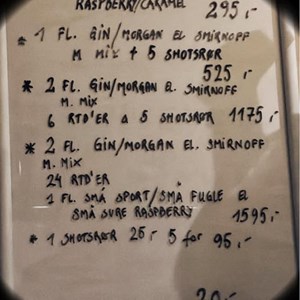 RASPBERRY/CARAMEL 295,-
* 1 FL. GIN/MORGAN EL SMIRNOFF
M MIX + 5 SHOTSRØR
525,-
* 2 FL. GIN/MORGAN EL. SMIRNOFF
M. MIX
6 RTD'ER Δ 5 SHOTSRØR 1175,-
* 2 FL. GIN/MORGAN EL. SMIRNOFF
M. MIX
24 RTD'ER
1 FL. SMÅ SPORT/SMÅ FUGLE EL
SMÅ SURE RASPBERRY 1595,-
* 1 SHOTSRØR 25,- 5 for 95,-